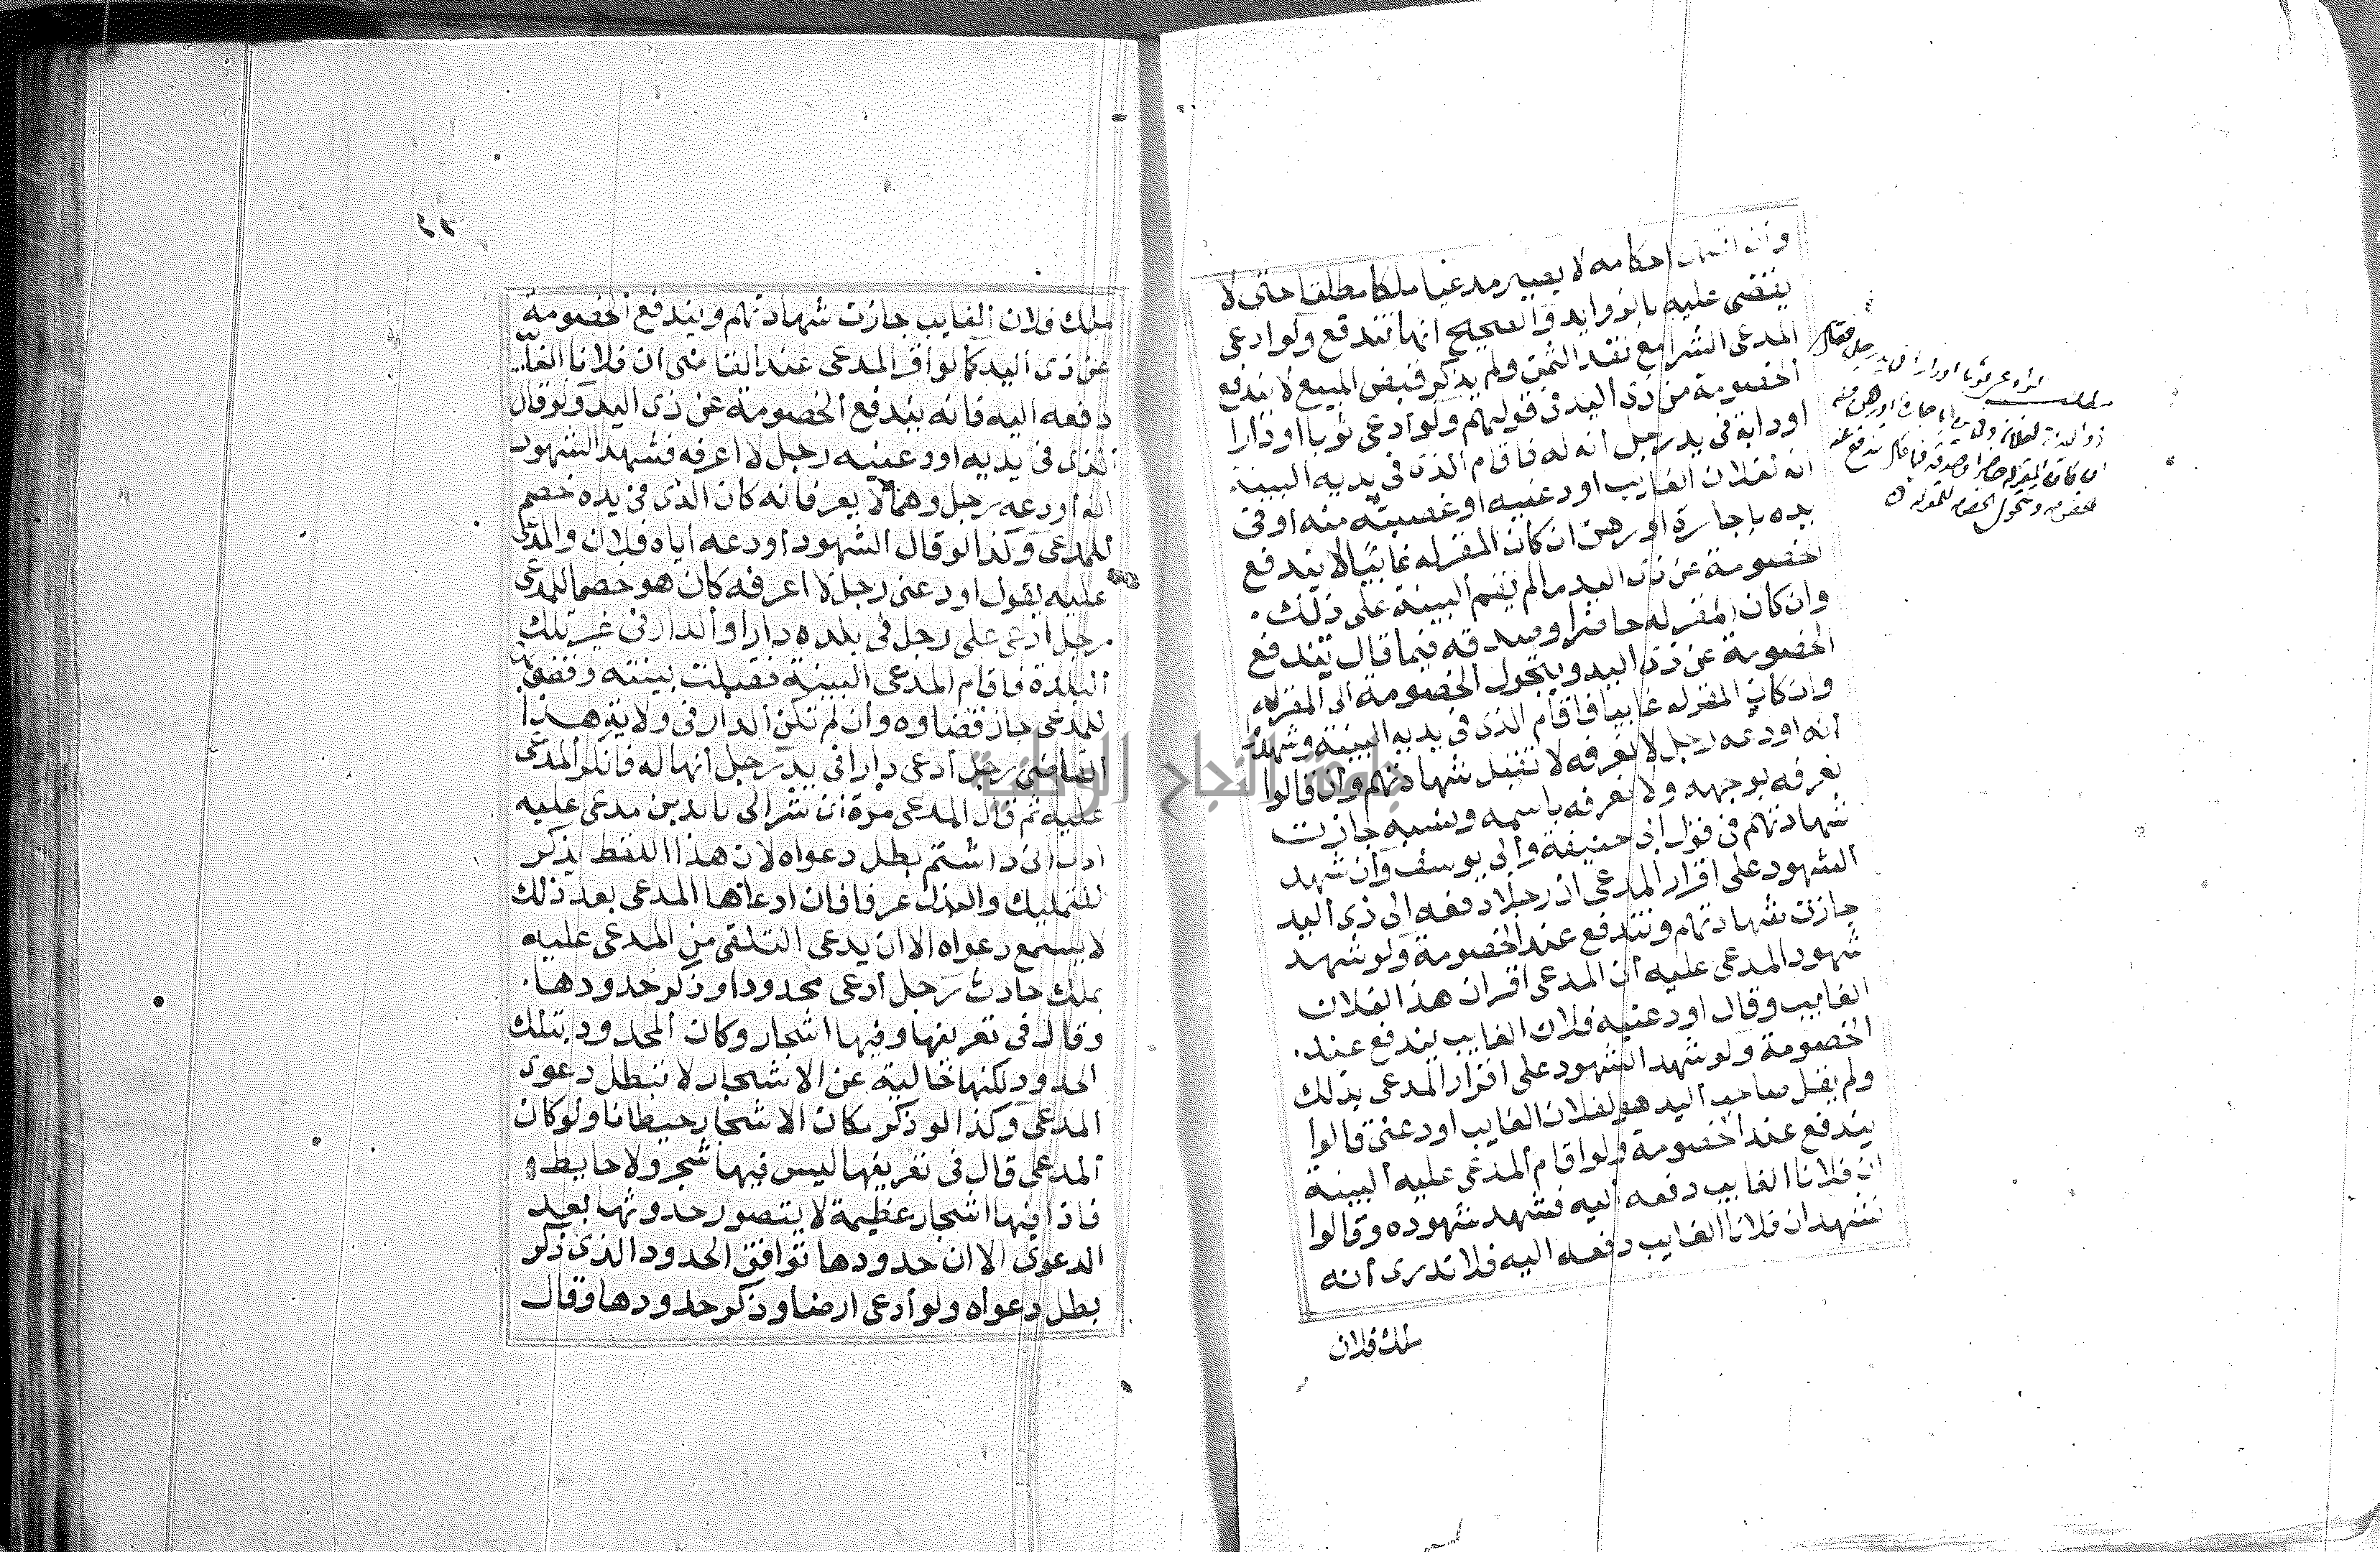 وان انتهت احكامه لا يصير مدعيا ملكا مطلقا حتى لا
يقضى عليه بالزوايد والصحيح انها تندفع ولو ادعى
المدعى الشرا مع نقد الثمن ولم يذكر قبض المبيع لا تندفع
الخصومة من ذى اليد فى قولهم ولو ادعى ثوبا او دارا
او دابة فى يد رجل انه له فاقام الذى فى يديه البينة
انه لفلان الغايب اودعنيه او غصبته منه او فى
يده باجارة او رهن ان كان المقر له غايبا لا يندفع
خصومة عن ذى اليد ما لم يقم البينة على ذلك.
وان كان المقر له حاضرا وصدقه فيما قال تندفع
الخصومة عن ذى اليد ويتحول الخصومة الى المقر له
وان كان المقر له غايبا فاقام الذى فى يديه البينة وشهدوا
انه اودعه رجل لا نعرفه لا تقبل شهادتهم وان قالوا
نعرفه بوجهه ولا نعرفه باسمه ونسبه جازت
شهادتهم فى قول ابى حنيفة وابى يوسف وان شهد
الشهود على اقرار المدعى ان رجلا دفعه الى ذى اليد
جازت شهادتهم وتندفع عند الخصومة ولو شهد
شهود المدعى عليه ان المدعى اقر ان هذا الفلان
الغايب وقال اودعنيه فلان الغايب يندفع عند.
الخصومة ولو شهد الشهود على اقرار المدعى بذلك
ولم يقل صاحب اليد هو لفلان الغايب اودعنى قالوا
يندفع عند الخصومة ولو اقام المدعى عليه البينة
ان فلانا الغايب دفعه اليه فشهد شهوده وقالوا
نشهد ان فلانا الغايب دفعه اليه فلا ندرى انه
ملك فلان
رجل فقال
ذو اليد
ان كان المقر له حاضرا وصدقه فيما قال تندفع عنه
الخصومة وتتحول الخصومة للمقر له
ملك فلان الغايب جازت شهادتهم ويندفع الخصومة
عن ذى اليد كما لو اقر المدعى عند القاضى ان فلانا الغايب
دفعه اليه فانه يندفع الخصومة عن ذى اليد ولو قال
الذى فى يديه اودعنيه رجل لا اعرفه فشهد الشهود
انه اودعه رجل وهما لا يعرفانه كان الذى فى يده خصم
للمدعى وكذا لو قال الشهود اودعه اياه فلان والمدعى
عليه يقول اودعنى رجل لا اعرفه كان هو خصما للمدعى
رجل ادعى على رجل فى بلده دارا والدار فى غير تلك
البلدة فاقام المدعى البينة فقبلت بينته وقضى
للمدعى جاز قضاوه وان لم تكن الدار فى ولاية هذا
القاضى رجل ادعى دارا فى يد رجل انها له فانكر المدعى
عليه ثم قال المدعى
بطل دعواه لان هذا اللفظ يذكر
للتمليك عرفا فان ادعاها المدعى بعد ذلك
لا يسمع دعواه الا ان يدعى التلقى من المدعى عليه
بملك حادث رجل ادعى محدودا وذكر حدودها.
وقال فى تعريفها وفيها اشجار وكان المحدود بتلك
الحدود لكنها خالية عن الاشجار لا تبطل دعوى
المدعى وكذا لو ذكر مكان الاشجار حيطانا ولو كان
المدعى قال فى تعريفها ليس فيها شجر ولا حايط و
فاذا فيها اشجار عظيمة لا يتصور حدوثها بعد
الدعوى الا ان حدودها توافق الحدود الذى ذكر
بطل دعواه ولو ادعى ارضا وذكر حدودها وقال
جامعة النجاح الوطنية